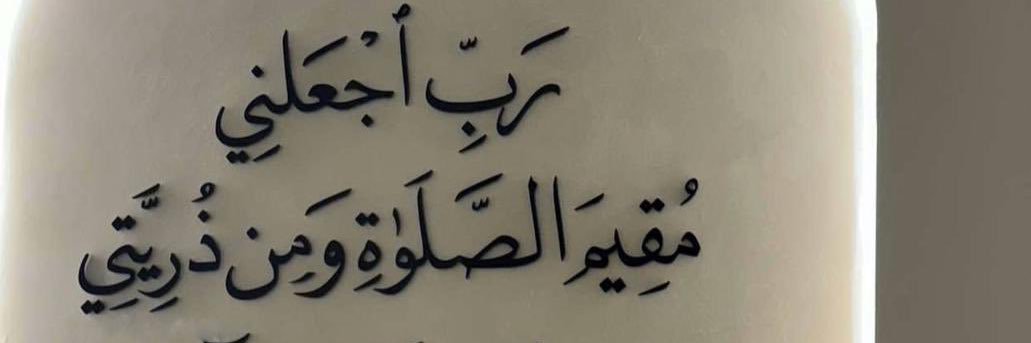 رَبِّ ٱجْعَلنِي
مُقِيمَ الصَّلَوٰةِ وَمِن ذُرِّيَّتِي